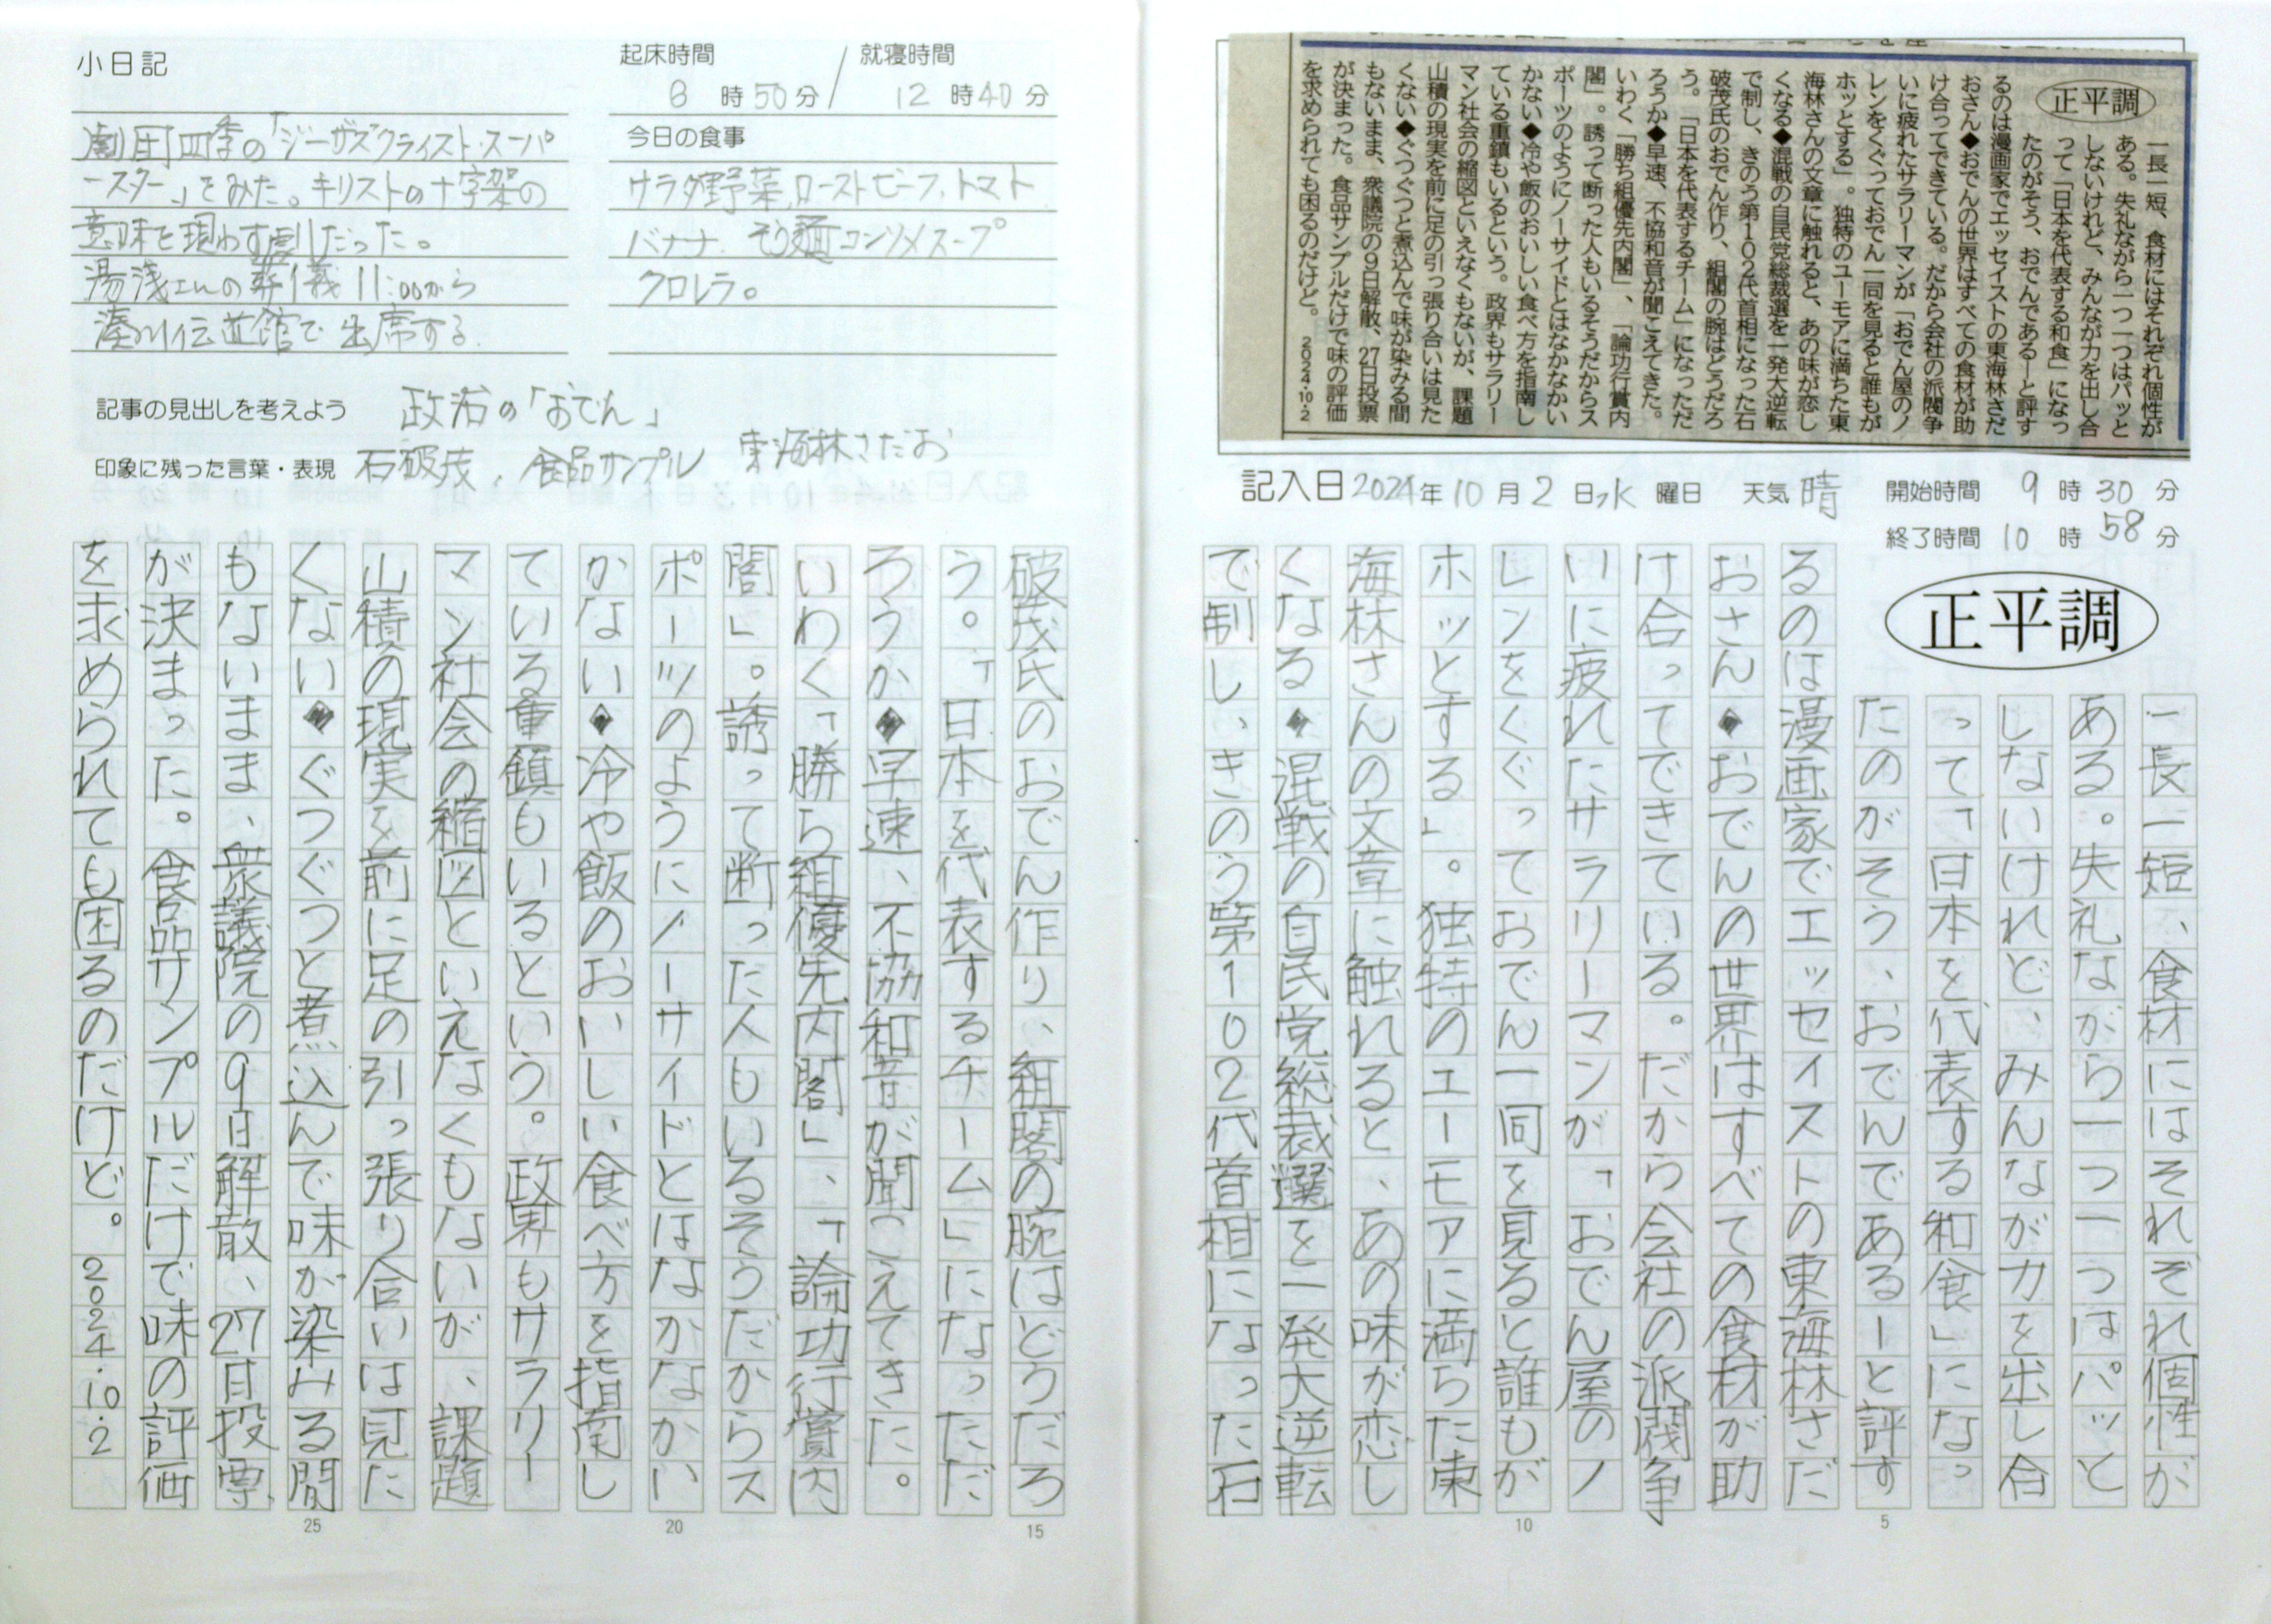 正平調
一長一短、食材にはそれぞれ個性が
ある。失礼ながら一つ一つはパッと
しないけれど、みんなが力を出し合
って「日本を代表する和食」になっ
たのがそう、おでんである―と評す
るのは漫画家でエッセイストの東海林さだ
おさん◆おでんの世界はすべての食材が助
け合ってできている。だから会社の派閥争
いに疲れたサラリーマンが「おでん屋のノ
レンをくぐっておでん一同を見ると誰もが
ホッとする」。独特のユーモアに満ちた東
海林さんの文章に触れると、あの味が恋し
くなる◆混戦の自民党総裁選を一発大逆転
で制し、きのう第102代首相になった石
破茂氏のおでん作り、組閣の腕はどうだろ
う。「日本を代表するチーム」になっただ
ろうか◆早速、不協和音が聞こえてきた。
いわく「勝ち組優先内閣」、「論功行賞内
閣」。誘って断った人もいるそうだからス
ポーツのようにノーサイドとはなかなかい
かない◆冷や飯のおいしい食べ方を指南し
ている重鎮もいるという。政界もサラリー
マン社会の縮図といえなくもないが、課題
山積の現実を前に足の引っ張り合いは見た
くない◆ぐつぐつと煮込んで味が染みる間
もないまま、衆議院の9日解散、27日投票
が決まった。食品サンプルだけで味の評価
を求められても困るのだけど。 2024・10・2
記入日 2024年 10月 2日 水曜日 天気 晴
開始時間 9時 30分
終了時間 10時 58分
正平調
一長一短、食材にはそれぞれ個性が
ある。失礼ながら一つ一つはパッと
しないけれど、みんなが力を出し合
って「日本を代表する和食」になっ
たのがそう、おでんであるーと評す
るのは漫画家でエッセイストの東海林さだ
おさん◆おでんの世界はすべての食材が助
け合ってできている。だから会社の派閥争
いに疲れたサラリーマンが「おでん屋のノ
レンをくぐっておでん一同を見ると誰もが
ホッとする」。独特のユーモアに満ちた東
海林さんの文章に触れると、あの味が恋し
くなる◆混戦の自民党総裁選を一発大逆転
で制し、きのう第102代首相になった石
5
10
小日記
劇団四季の「ジーザスクライスト・スーパ
ースター」をみた。キリストの十字架の
意味を現わす劇だった。
湯浅さんの葬儀11:00から
湊川伝道館で出席する
起床時間 6時50分/就寝時間 12時40分
今日の食事
サラダ野菜、ローストビーフ、トマト
バナナ、そう麺コンソメスープ
クロレラ。
記事の見出しを考えよう 政治の「おでん」
印象に残った言葉・表現 石破茂、食品サンプル 東海林さだお
破茂氏のおでん作り、組閣の腕はどうだろ
う。「日本を代表するチーム」になっただ
ろうか◆早速、不協和音が聞こえてきた。
いわく「勝ち組優先内閣」、「論功行賞内
閣」。誘って断った人もいるそうだからス
ポーツのようにノーサイドとはなかなかい
かない◆冷や飯のおいしい食べ方を指南し
ている重鎮もいるという。政界もサラリー
マン社会の縮図といえなくもないが、課題
山積の現実を前に足の引っ張り合いは見た
くない◆ぐつぐつと煮込んで味が染みる間
もないまま、衆議院の9日解散、27日投票
が決まった。食品サンプルだけで味の評価
を求められても困るのだけど。2024.10.2
15
20
25